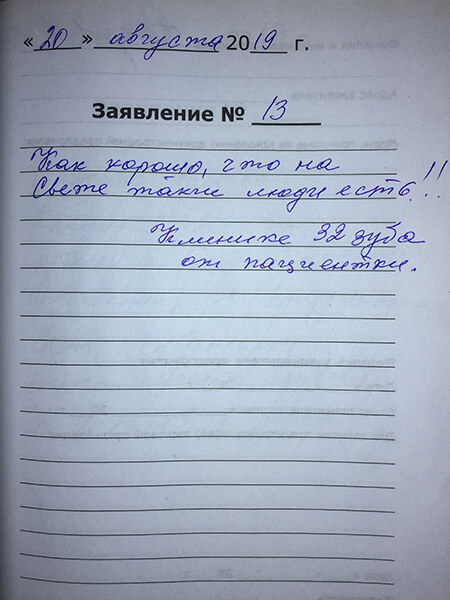 «20» августа 2019 г.
Заявление № 13
Как хорошо, что на
свете такие люди есть!!
Клинике 32 зуба
от пациентки.